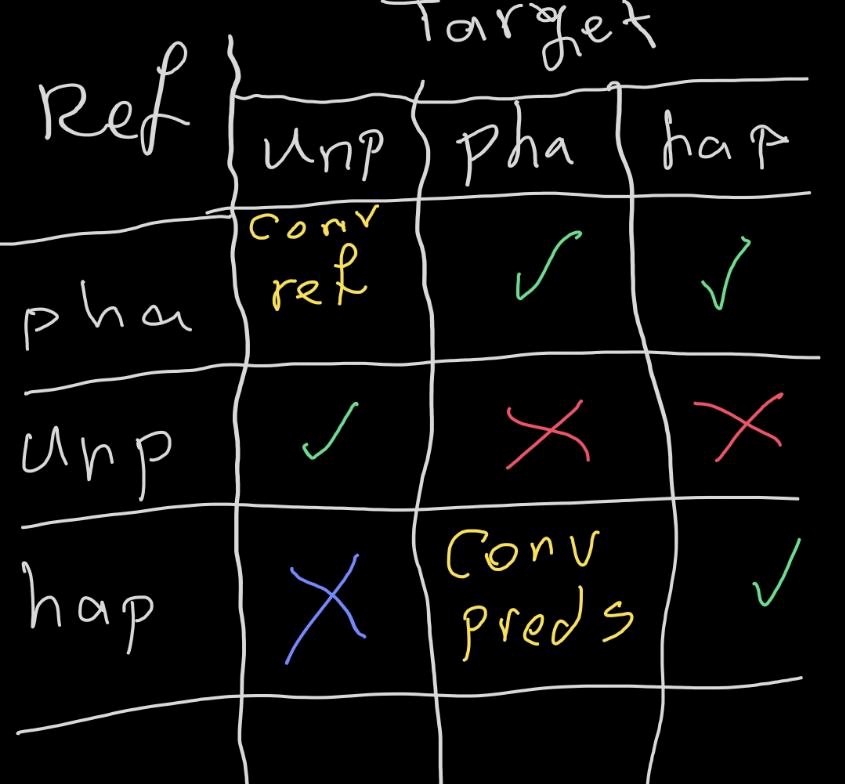 Target
Ref
Unp pha hap
pha Conv ref ✓ ✓
Unp ✓ X X
hap X Conv preds ✓